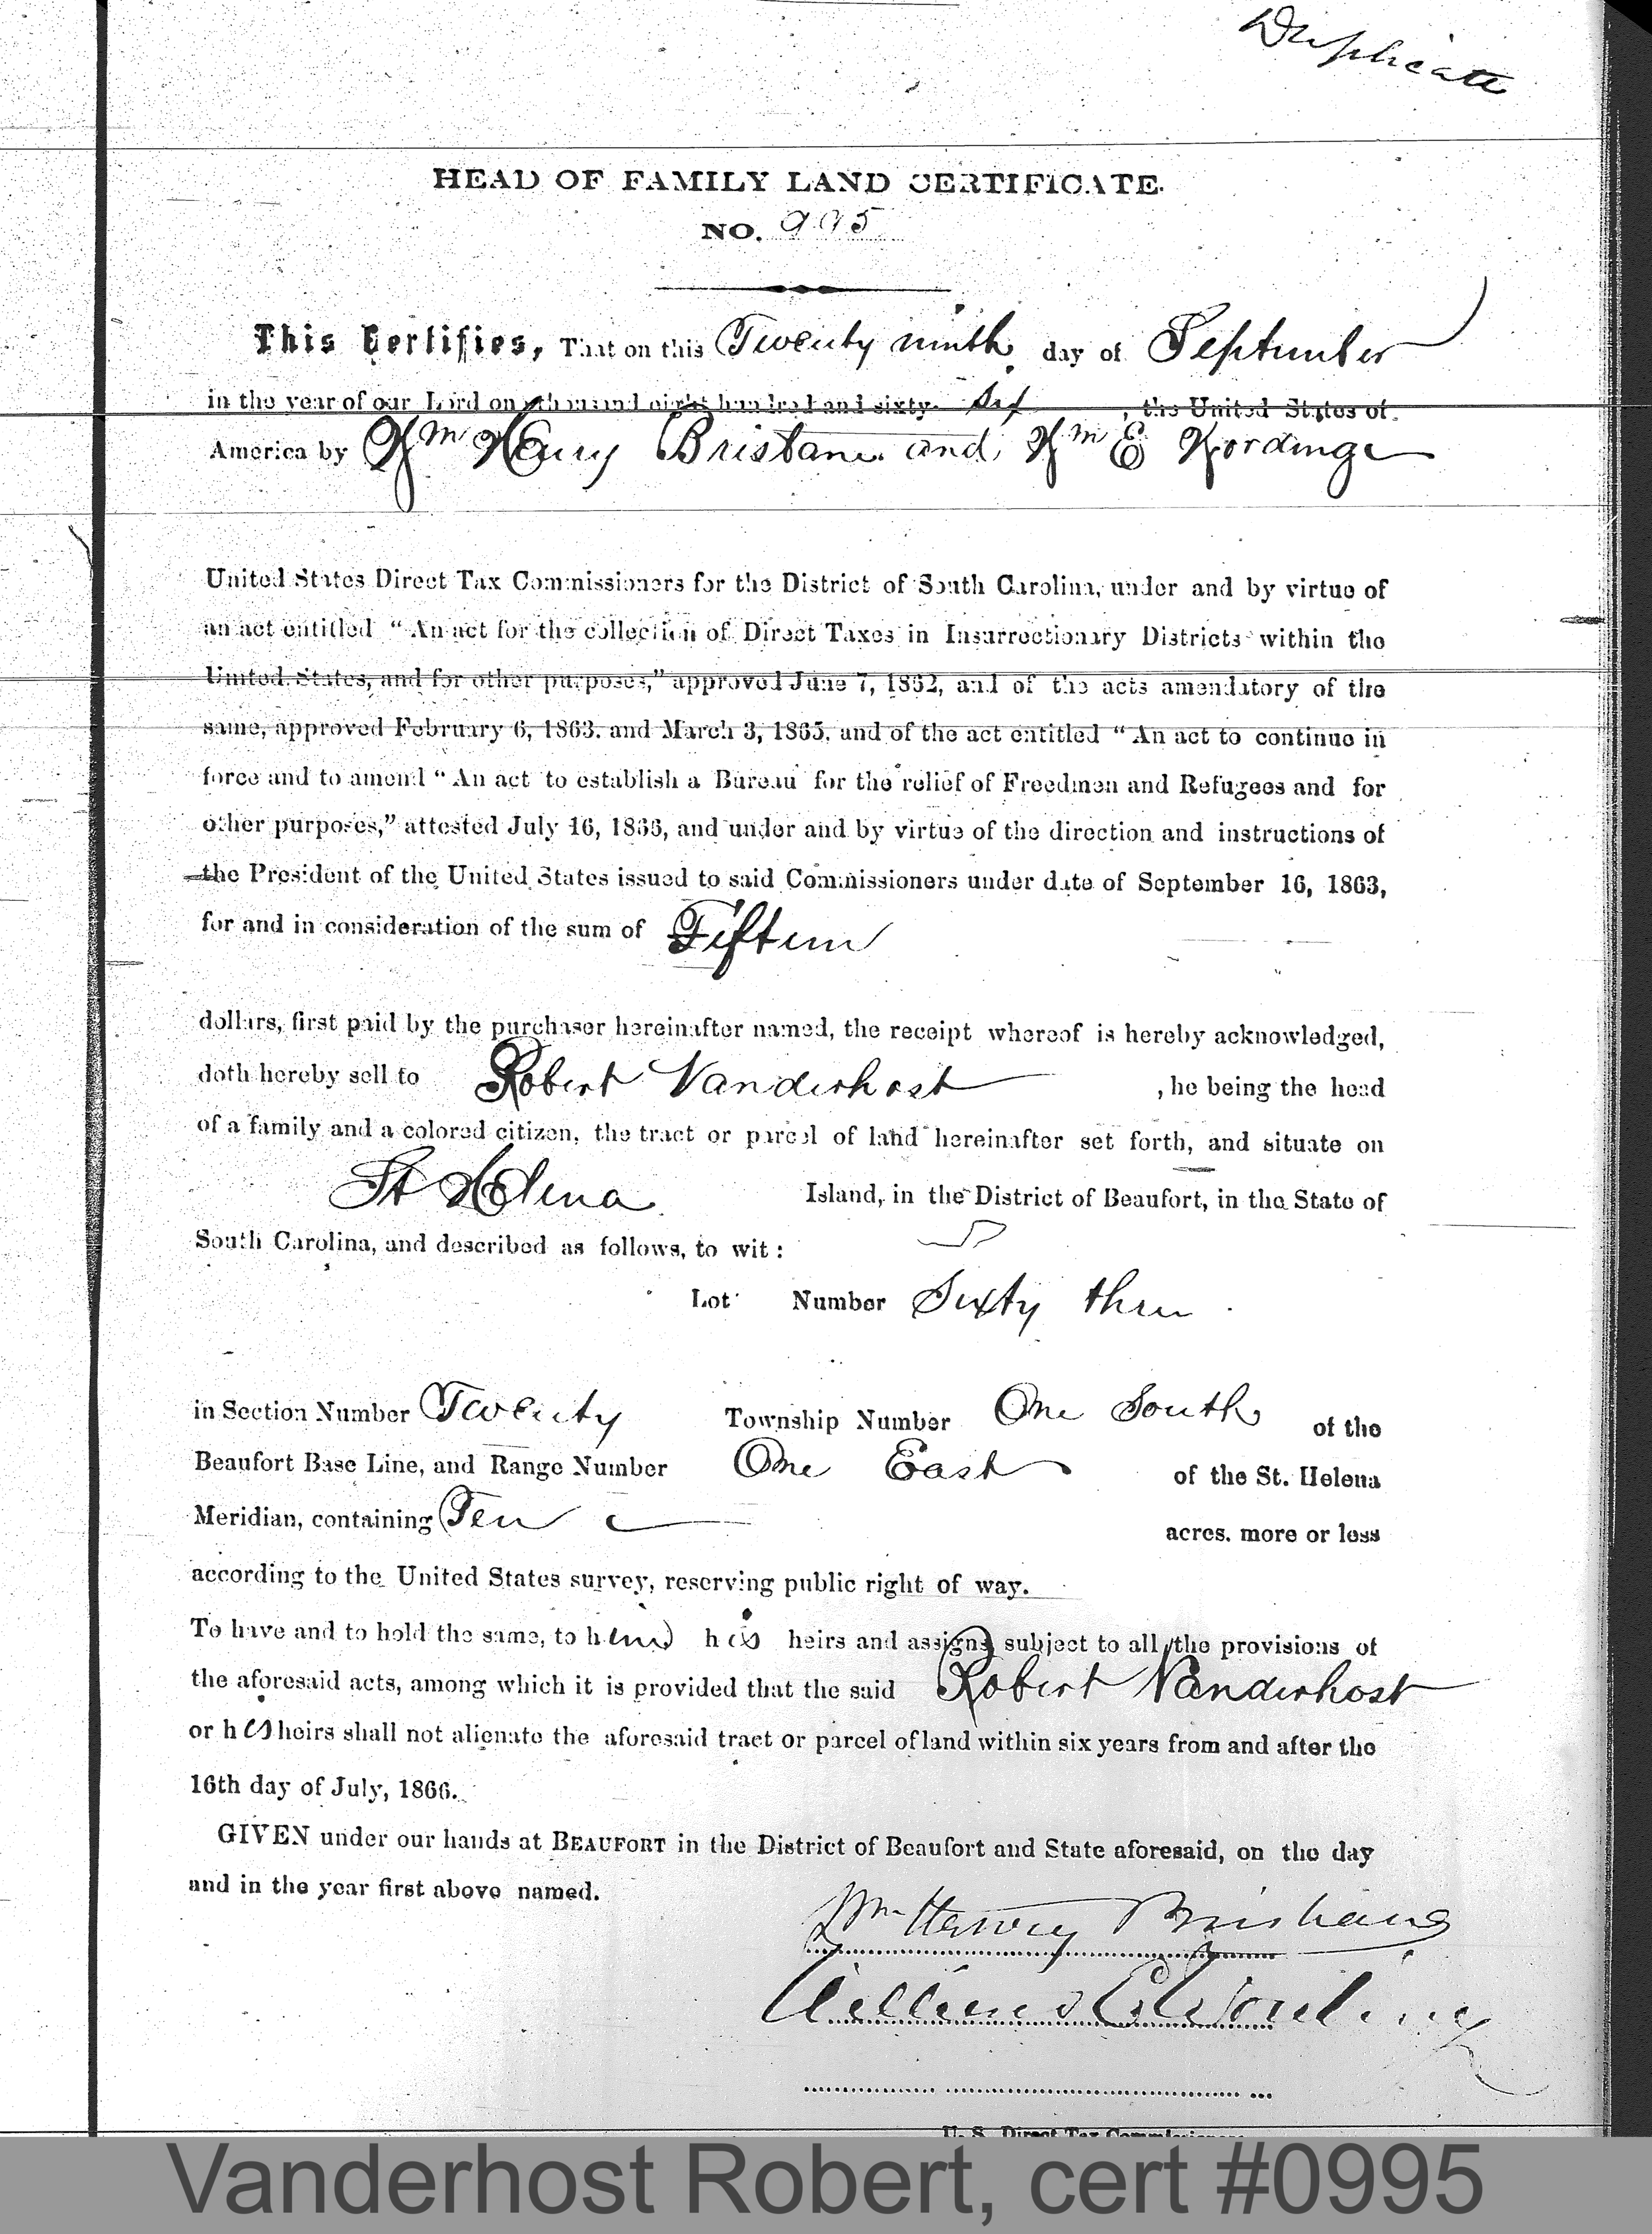 Duplicate
HEAD OF FAMILY LAND CERTIFICATE.
NO. 995
This Certifies, That on this Twenty ninth day of September
in the year of our Lord one thousand eight hundred and sixty six, the United States of
America by Wm Henry Brisbane and Wm E Wording
United States Direct Tax Commissioners for the District of South Carolina, under and by virtue of
an act entitled "An act for the collection of Direct Taxes in Insurrectionary Districts within the
United States, and for other purposes," approved June 7, 1862, and of the acts amendatory of the
same, approved February 6, 1863. and March 3, 1865. and of the act entitled "An act to continue in
force and to amend "An act to establish a Bureau for the relief of Freedmen and Refugees and for
other purposes," attested July 16, 1866, and under and by virtue of the direction and instructions of
the President of the United States issued to said Commissioners under date of September 16, 1863,
for and in consideration of the sum of Fifteen
dollars, first paid by the purchaser hereinafter named, the receipt whereof is hereby acknowledged,
doth hereby sell to Robert Vanderhost , he being the head
of a family and a colored citizen, the tract or parcel of land hereinafter set forth, and situate on
St Helena Island, in the District of Beaufort, in the State of
South Carolina, and described as follows, to wit :
Lot Number Sixty three
in Section Number Twenty Township Number One South of the
Beaufort Base Line, and Range Number One East of the St. Helena
Meridian, containing Ten acres. more or less
according to the United States survey, reserving public right of way.
To have and to hold the same, to him his heirs and assigns subject to all the provisions of
the aforesaid acts, among which it is provided that the said Robert Vanderhost
or his heirs shall not alienate the aforesaid tract or parcel of land within six years from and after the
16th day of July, 1866.
GIVEN under our hands at BEAUFORT in the District of Beaufort and State aforesaid, on the day
and in the year first above named.
Wm Henry Brisbane
William E Wording
U. S. Direct Tax Commissioners
Vanderhost Robert, cert #0995